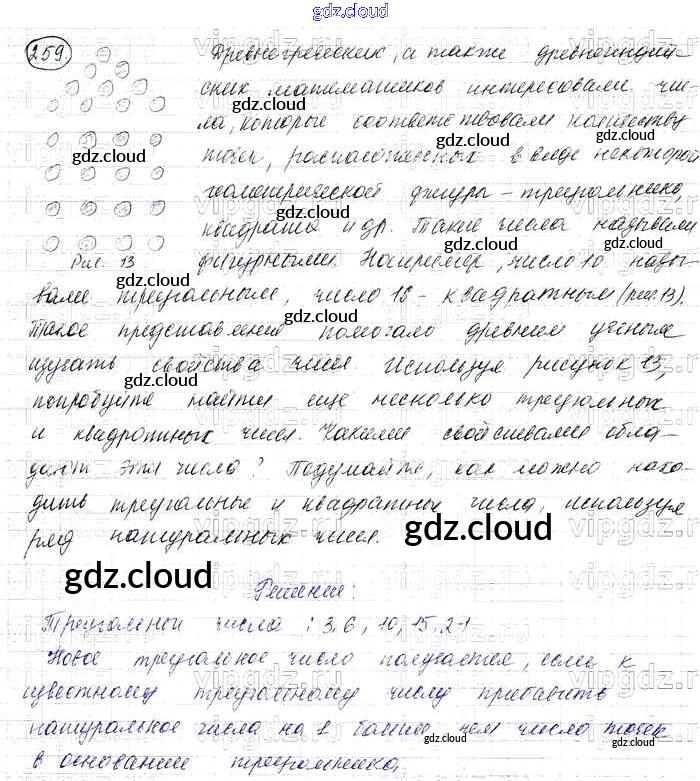 gdz.cloud
259 Древнегреческих, а также древнеиндий-
ских математиков интересовали чис-
ла, которые соответствовали количеству
точек, расположенных в виде некоторой
геометрической фигуры – треугольника,
квадрата и др. Такие числа называли
Рис. 13 фигурными. Например, число 10 назы-
вали треугольным, число 16 - квадратным (рис. 13).
Такое представление помогало древним ученым
изучать свойства чисел. Используя рисунок 13,
попробуйте найти еще несколько треугольных
и квадратных чисел. Какими свойствами обла-
дают эти числа? Подумайте, как можно нахо-
дить треугольные и квадратные числа, используя
ряд натуральных чисел.
Решение:
Треугольные числа: 3, 6, 10, 15, 21
Новое треугольное число получается, если к
известному треугольному числу прибавить
натуральное число на 1 больше, чем число точек
в основании треугольника.